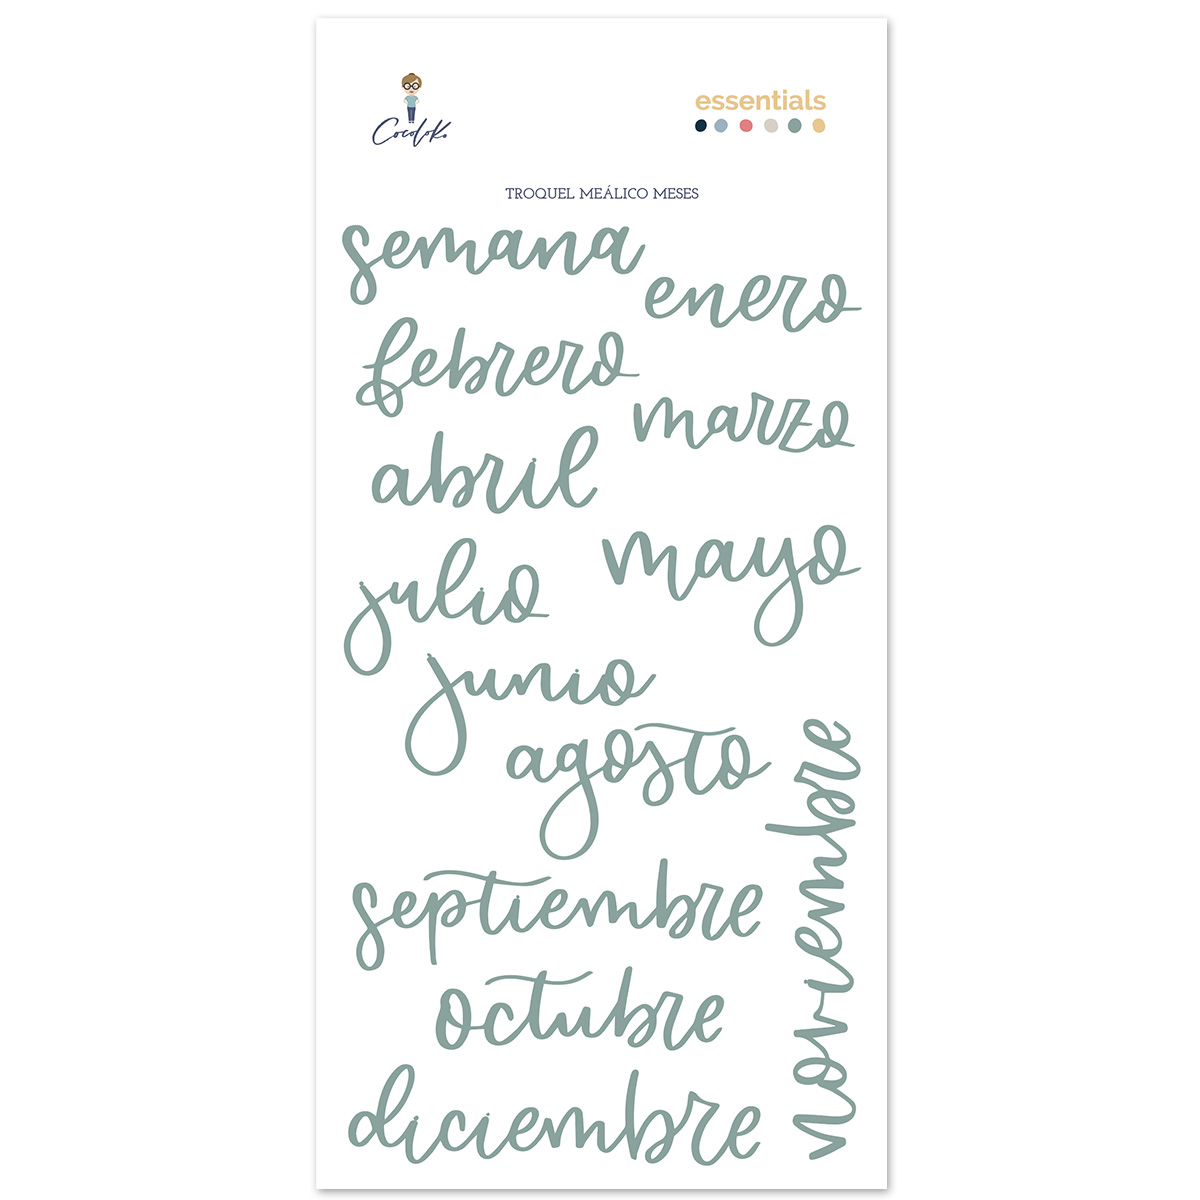 CocoloKo
essentials
TROQUEL MEÁLICO MESES
semana
enero
febrero
marzo
abril
mayo
julio
junio
agosto
noviembre
septiembre
octubre
diciembre